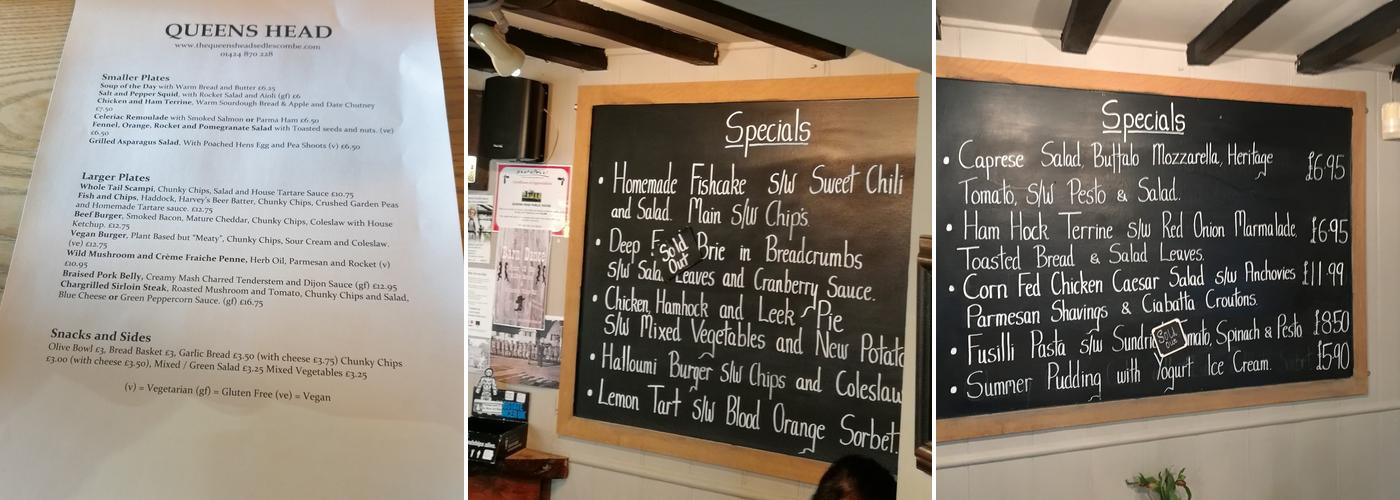 QUEENS HEAD
www.thequeensheadsedlescombe.com
01424 870 228
Smaller Plates
Soup of the Day with Warm Bread and Butter £6.25
Salt and Pepper Squid, with Rocket Salad and Aioli (gf) £6
Chicken and Ham Terrine, Warm Sourdough Bread & Apple and Date Chutney
£7.50
Celeriac Remoulade with Smoked Salmon or Parma Ham £6.50
Fennel, Orange, Rocket and Pomegranate Salad with Toasted seeds and nuts. (ve)
£6.50
Grilled Asparagus Salad, With Poached Hens Egg and Pea Shoots (v) £6.50
Larger Plates
Whole Tail Scampi, Chunky Chips, Salad and House Tartare Sauce £10.75
Fish and Chips, Haddock, Harvey's Beer Batter, Chunky Chips, Crushed Garden Peas
and Homemade Tartare sauce. £12.75
Beef Burger, Smoked Bacon, Mature Cheddar, Chunky Chips, Coleslaw with House
Ketchup. £12.75
Vegan Burger, Plant Based but "Meaty", Chunky Chips, Sour Cream and Coleslaw.
(ve) £12.75
Wild Mushroom and Crème Fraiche Penne, Herb Oil, Parmesan and Rocket (v)
£10.95
Braised Pork Belly, Creamy Mash Charred Tenderstem and Dijon Sauce (gf) £12.95
Chargrilled Sirloin Steak, Roasted Mushroom and Tomato, Chunky Chips and Salad,
Blue Cheese or Green Peppercorn Sauce. (gf) £16.75
Snacks and Sides
Olive Bowl £3, Bread Basket £3, Garlic Bread £3.50 (with cheese £3.75) Chunky Chips
£3.00 (with cheese £3.50), Mixed / Green Salad £3.25 Mixed Vegetables £3.25
(v) = Vegetarian (gf) = Gluten Free (ve) = Vegan
Specials
• Homemade Fishcake s/w Sweet Chili
and Salad. Main s/w Chips.
• Deep Brie in Breadcrumbs
Sold Out
s/w Leaves and Cranberry Sauce.
• Chicken, Hamhock and Leek Pie
s/w Mixed Vegetables and New Potato
• Halloumi Burger s/w Chips and Coleslaw
• Lemon Tart s/w Blood Orange Sorbet.
Barn Dance
Specials
• Caprese Salad, Buffalo Mozzarella, Heritage £6.95
Tomato, s/w Pesto & Salad.
• Ham Hock Terrine s/w Red Onion Marmalade, £6.95
Toasted Bread & Salad Leaves.
• Corn Fed Chicken Caesar Salad s/w Anchovies £11.99
Parmesan Shavings & Ciabatta Croutons.
• Fusilli Pasta s/w Spinach & Pesto £8.50
Sold Out
• Summer Pudding with Yogurt Ice Cream. £5.90